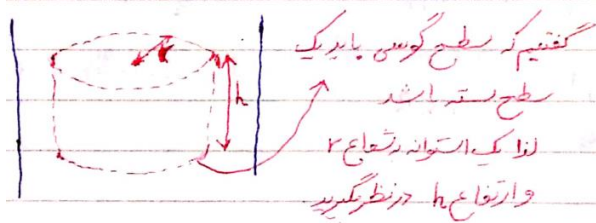 گفتیم که سطح گوسی باید یک
سطح بسته باشد
لذا یک استوانه به شعاع r
و ارتفاع h در نظر بگیرید
r
h